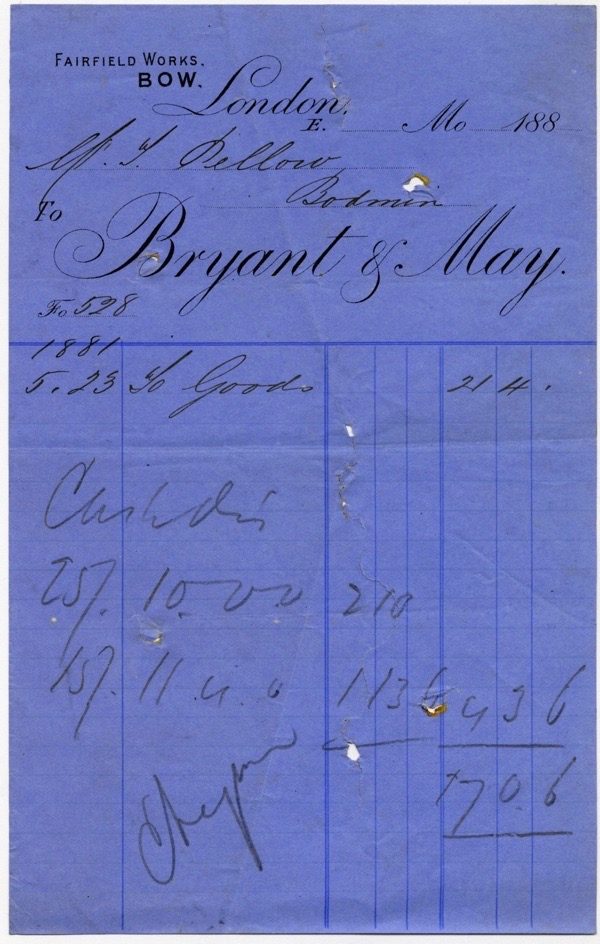 FAIRFIELD WORKS,
BOW.
London,
E. Mo 188
Mr. T. Pellow
Bodmin
To
Bryant & May.
Fo 528
1881
5. 23 To Goods 21 4 .
Cash Dis
25/. 10.0.0 2 10
15/. 11.4.0 1 13 6 4 3 6
17 0 6